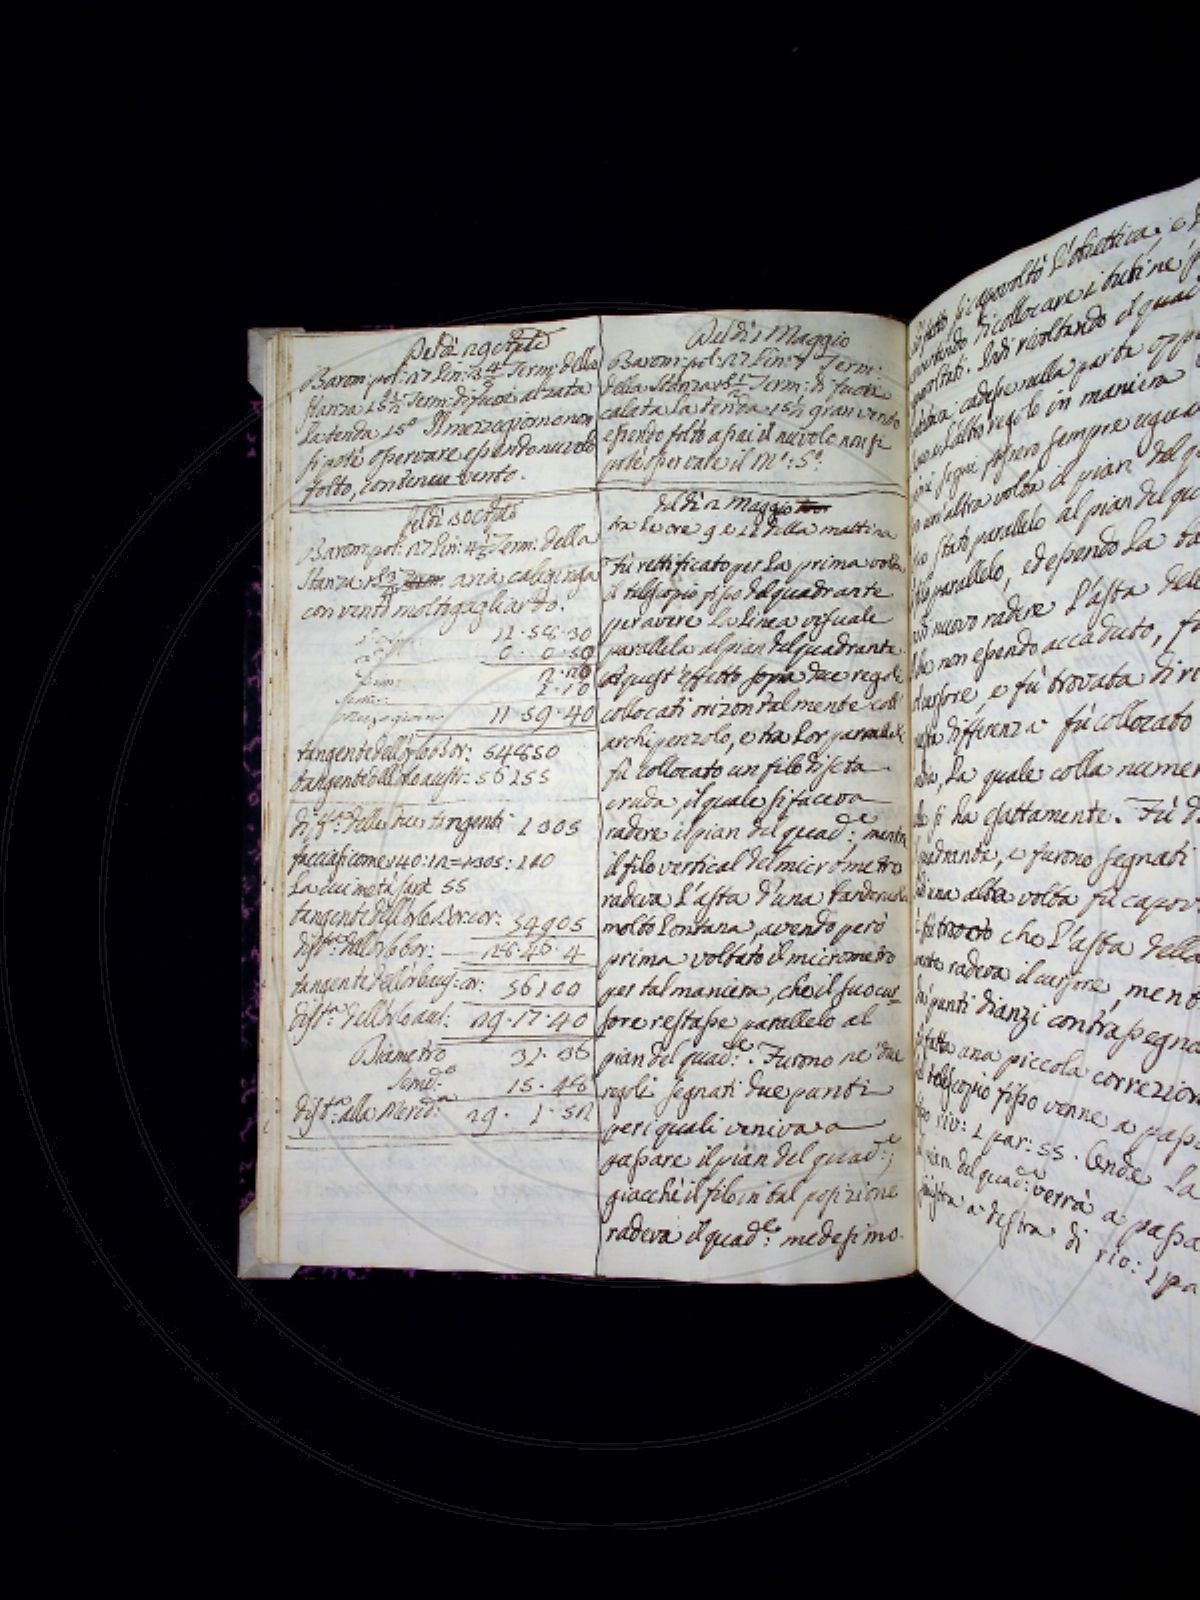 Del dì 29 Aple
Barom: pol: 27 Lin: 3 4/8 Term: della
stanza 15 1/2 Term: di fuori alzata
la tenda 15° Il mezzogiorno non
si potè osservare essendo nuvolo
folto, con tenue vento.
Del dì 30
Barom: pol: 27 Lin: 4 1/2 Term: della
Stanza aria caliginosa
con vento molto gagliardo.
11. 58. 30
0. 0. 50
2. 20
1. 10
mezzogiorno 11. 59. 40
tangente dell'orlo bor: 54850
tangente dell'orlo austr: 56155
diffa: delle due tangenti 1305
facciasi come 140:12=1305:110
La cui metà sarà 55
tangente dell'orlo Bor: cor: 54905
dista: dell'orlo bor: 28. 46. 4
tangente dell'orlo aus: cor: 56100
dista: dell'orlo aus: 29. 17. 40
Diametro 31. 36
Semido 15. 48
dista: alla Merida 29. 1. 52
Del dì 1 Maggio
Barom: pol: 27 Lin: 4 Term:
della Stanza 15 1/2 Term: di fuori
calata la tenda 15 1/2 gran vento
essendo folto assai il nuvolo non si
potè osservare il Mo: So:
Del dì 2 Maggio
tra le ore 9 e 11 della mattina
Fù rettificato per la prima volta
il telescopio fisso del quadrante
per avere la linea visuale
parallela al pian del quadrante.
A quest'effetto sopra due regoli
collocati orizontalmente coll'
archipenzolo, e tra lor paralleli
fù collocato un filo di seta
cruda, il quale si faceva
radere il pian del quade: mentre
il filo vertical del micrometro
radeva l'asta d'una banderuola
molto lontana, avendo però
prima voltato il micrometro
per tal maniera, che il suo cur-
sore restasse parallelo al
pian del quade:. Furono ne' due
regoli segnati due punti
per i quali veniva a
passare il pian del quade:;
giacchè il filo in tal posizione
radeva il quade: medesimo.
si capovoltò l'obiettiva; e
avvertendo di collocare i tubi ne'
Indi rivoltando il quad
cadesse nella parte opp
e l'altro regolo in maniera
segni stessero sempre ugual
un'altra volta il pian del qu
stati parallelo al pian del qu
parallelo, ed essendo la ba
di nuovo radere l'asta dell
che non essendo accaduto, fù
cursore, e fù trovata di ri
differenza fù collocato
la quale colla numer
si ha esattamente. Fù d
quadrante, e furono segnati
una altra volta fù capov
che l'asta della
radeva il cursore, ment
punti dianzi contrassegna
fatta una piccola correzion
telescopio fisso venne a passa
riv: 1 par: 55. Onde la
pian del quade: verrà a passa
sinistra a destra di riv: 1 pa